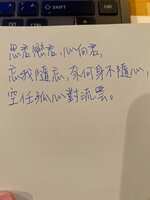 思君戀君，心向君，
忘我隨流，奈何身不隨心，
空任孤心對流雲。